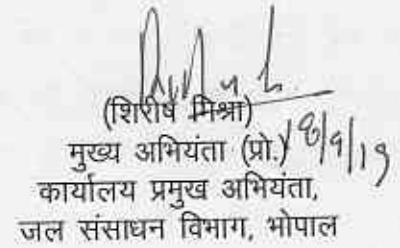 (शिरीष मिश्रा)
मुख्य अभियंता (प्रो.) 18/9/19
कार्यालय प्रमुख अभियंता,
जल संसाधन विभाग, भोपाल